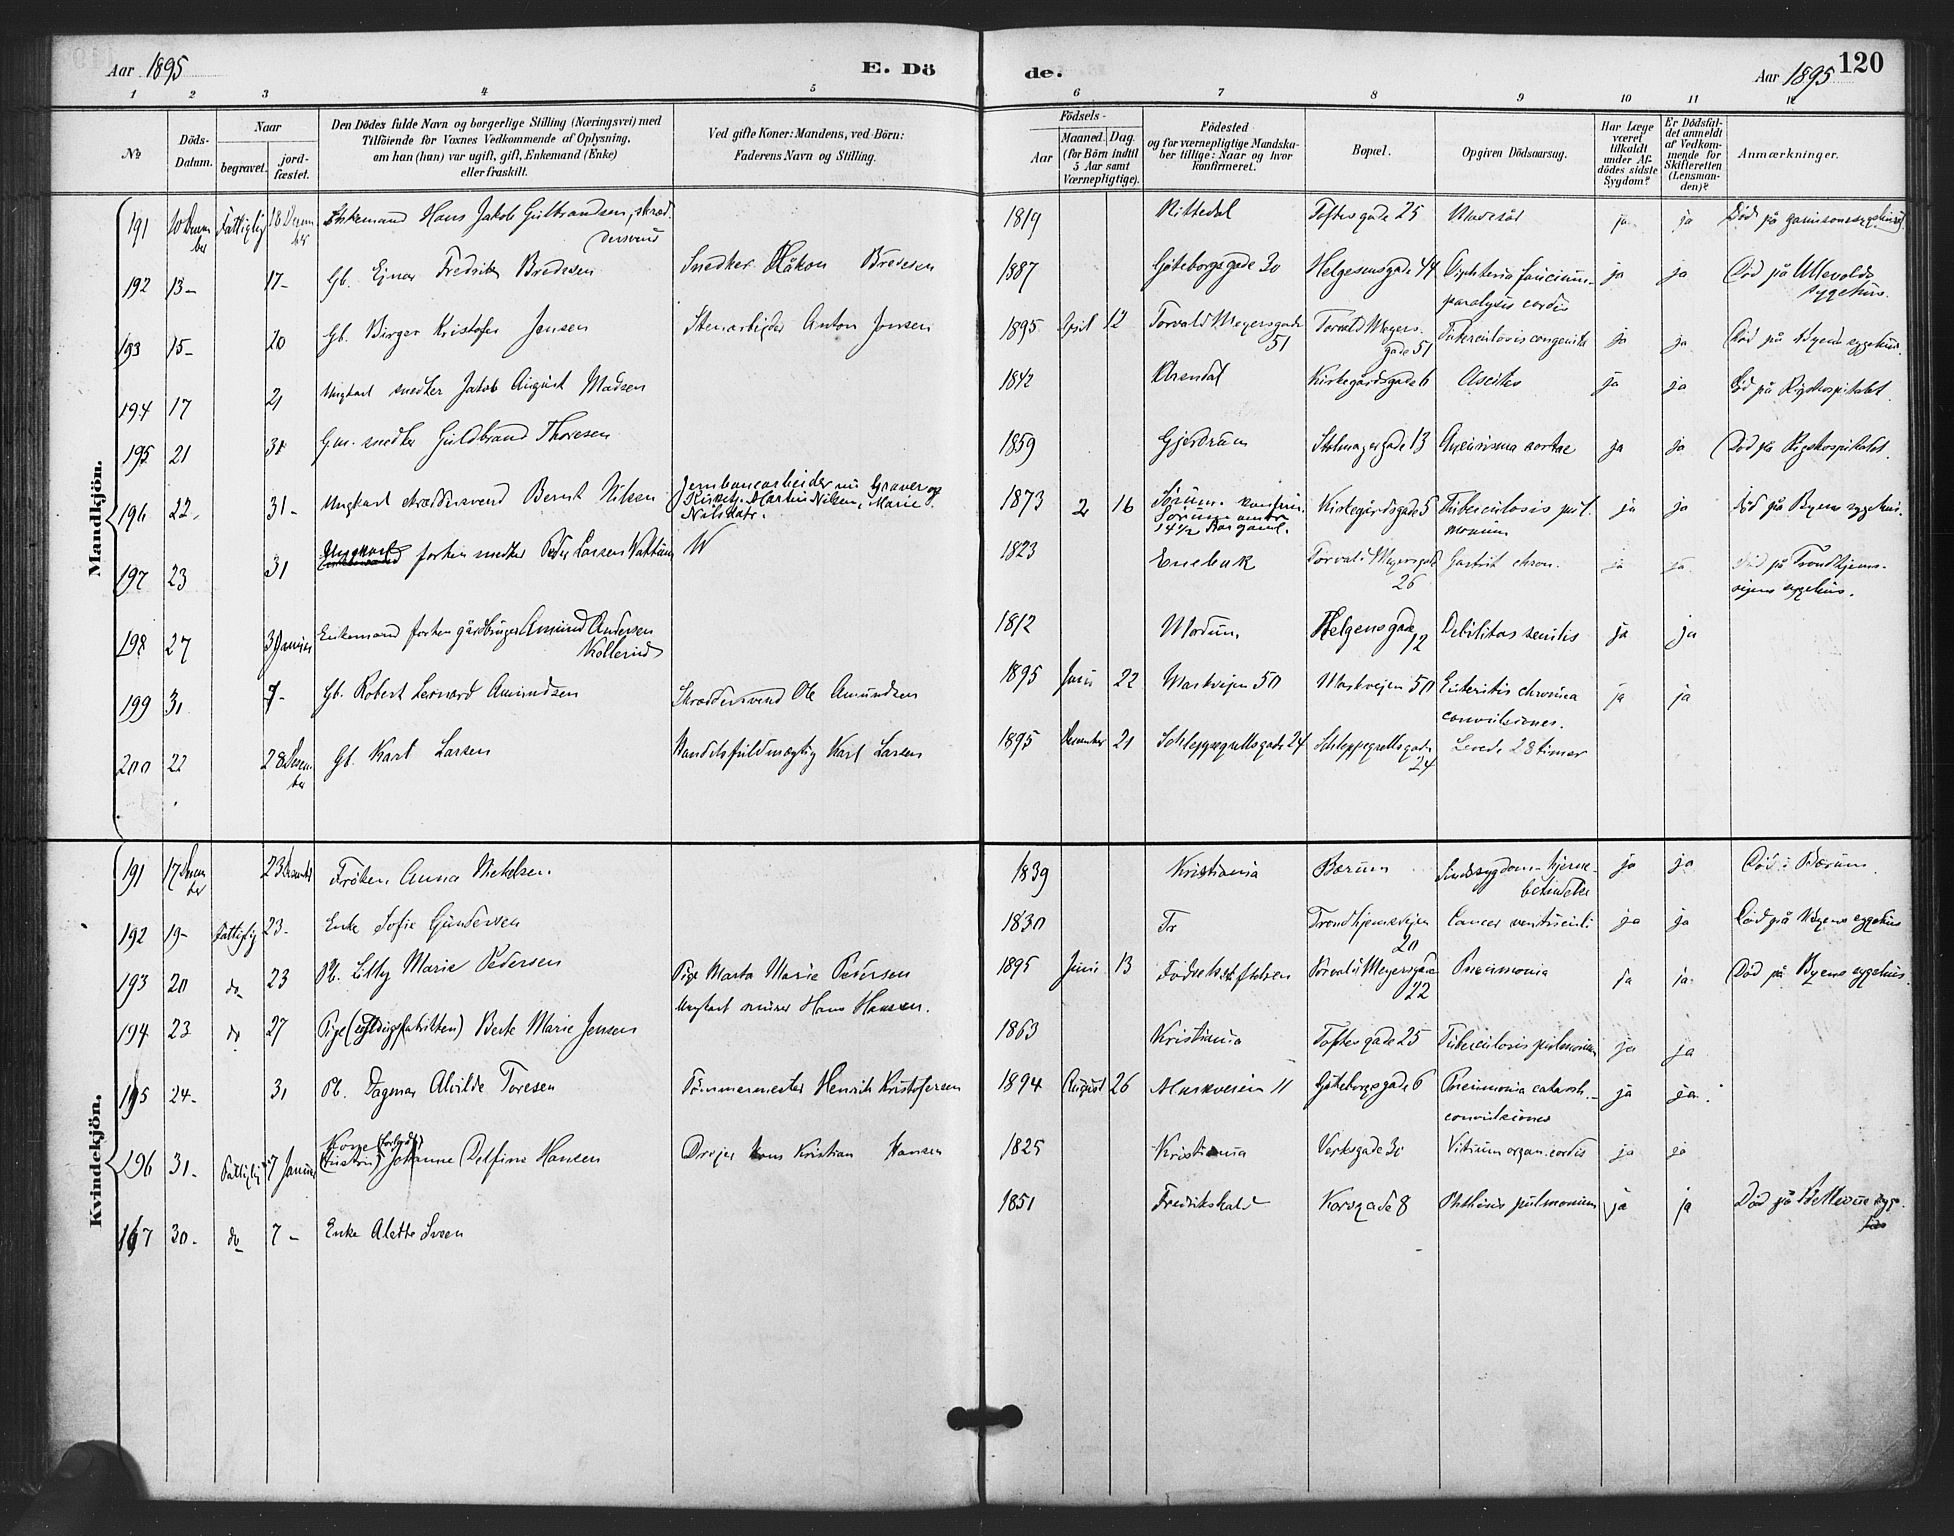 Aar 1895
E. Dö
de.
Aar 1895 120
1 2 3 4 5 6 7 8 9 10 11 12
№
Döds-
Datum.
Naar
begravet.
jord-
fæstet.
Den Dödes fulde Navn og borgerlige Stilling (Næringsvei) med
Tilföiende for Voxnes Vedkommende af Oplysning,
om han (hun) var ugift, gift, Enkemand (Enke)
eller fraskilt.
Ved gifte Koner: Mandens, ved Börn:
Faderens Navn og Stilling.
Födsels-
Aar
Maaned. Dag
(for Börn indtil
5 Aar samt
Værnepligtige).
Födested
og for værnepligtige Mandska-
ber tillige: Naar og hvor
konfirmeret.
Bopæl.
Opgiven Dödsaarsag.
Har Læge
været
tilkaldt
under Af-
dödes sidste
Sygdom?
Er Dödsfal-
det anmeldt
af Vedkom-
mende for
Skifteretten
(Lensman-
den)?
Anmærkninger.
Mandkjön.
191 10 Decem-
ber Fattiglig 18 Decem-
ber Enkemand Hans Jakob Gulbrandsen, skræd-
dersvend 1819 Toftesgade 25 ja ja Död på garnisonssygehuset.
192 13- 17- Gb. Ejnar Fredrik Bredesen Snedker Håkon Bredesen 1887 Göteborgsgade 30 Helgesensgade 44 Diphteria faucium-
paralysis cordis ja ja Död på Ullevolds
sygehus.
193 15- 20 Gb. Birger Kristofer Jensen Stenarbejder Anton Jensen 1895 April 12 Torvald Meyersgade
51 Torvald Meyers-
gade 51 Tuberculosis congenita ja ja Död på Byens sygehus.
194 17 21 Ungkarl snedker Jakob August Madsen 1842 Arendal Kirkegårdsgade 6 Ascites ja ja Död på Rigshospitalet.
195 21 31 Gm. snedker Guldbrand Thoresen 1859 Gjerdrum Stolmagergade 13 Aneurisma aortae ja ja Död på Rigshospitalet.
196 22- 31- Ungkarl skræddersvend Bernt Nilsen Jernbanearbeider nu Graver og
Kirketj. Martin Nilsen, Marie
Nilsdatr. 1873 2 16 Sörum. konfirm.
Sörum omtr.
14 1/2 Aar gaml. Kirkegårdsgade 5 Tuberculosis pul-
monum ja ja Död på Byens sygehus.
197 23 31 Ungkarl forhen snedker Peder Larsen 1823 Enebak Torvald Meyersgade
26 Gastrit chron. ja ja Död på Trondhjems-
vejens sygehus.
198 27 3 Januar Enkemand forhen gårdbruger Amund Andersen
Kollerud 1812 Modum, Helgensgade
12 Debilitas senilis ja ja
199 31 7- Gb. Robert Leonard Amundsen Skræddersvend Ole Amundsen 1895 Juni 22 Markvejen 50 Markvejen 50 Enteritis chronica
convulsiones. ja ja
200 22 28 Decem-
ber Gb. Karl Larsen Handelsfuldmægtig Karl Larsen 1895 December 21 Schleppegrellsgade 24 Schleppegrellsgade
24 Levede 28 timer
Kvindekjön.
191 17 Decem-
ber 23 December Fröken Anna Mikelsen. 1839 Kristiania Bærum Sindssygdom - hjerne-
betændelse ja ja Död i Bærum.
192 19- fattiglig 23- Enke Sofie Gundersen 1830 Tr Trondhjemsvejen
20 Cancer ventriculi ja ja Död på Byens sygehus
193 20 do 23 Pb. Lilly Marie Pedersen Pige Marta Marie Pedersen
Ungkarl murer Hans Hansen. 1895 Juni 13 Födselsstiftelsen Torvald Meyersgade
22 Pneumonia ja ja Död på Byens sygehus.
194 23 do 27 Pige Berte Marie Jensen 1863 Kristiania Toftesgade 25 Tuberculosis pulmonum ja ja
195 24- 31 Pb. Dagmar Alvilde Toresen Tömmermester Henrik Kristofersen 1894 August 26 Markveien 11 Göteborgsgade 6 Pneumonia catarrh.-
convulsiones ja ja
196 31- Fattiglig 7 Januar Kone
Johanne Delfine Hansen Drejer Hans Kristian Hansen 1825 Kristiania Verksgade 3 Vitium organ. cordis ja ja
167 30- do 7- Enke Alette Sveen 1851 Fredrikshald Korsgade 8 Phthisis pulmonum ja ja Död på Bellevue syge-
hus